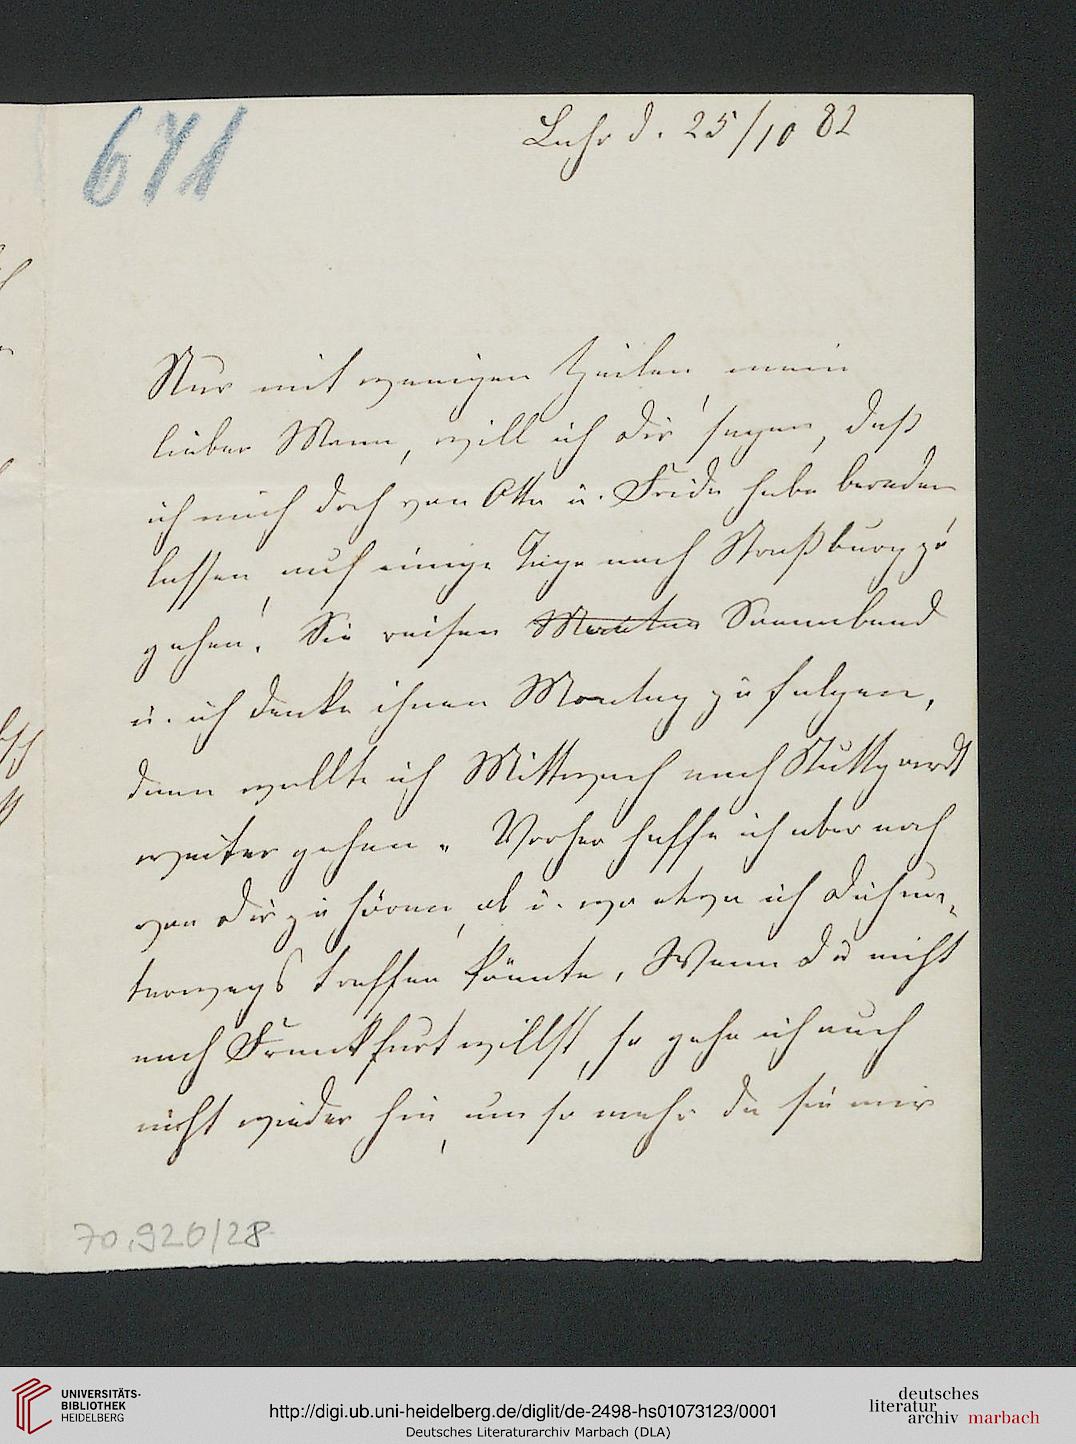 671
Lahr d. 25/10 82
Nur mit wenigen Zeilen mein
lieber Mann, will ich dir sagen, daß
ich mich doch von Otto u. Frida habe bereden
lassen, auf einige Tage nach Straßburg zu
gehen! Sie reisen Sonnabend
u. ich denke ihnen Montag zu folgen,
dann wollte ich Mittwoch nach Stuttgardt
weiter gehen. Vorher hoffe ich aber noch
von dir zu hören, ob u. wo etwa ich dich un-
terwegs treffen könnte, Wenn du nicht
nach Frankfurt willst, so gehe ich auch
nicht wieder hin, um so mehr da sie mir
70.920/28
UNIVERSITÄTS-
BIBLIOTHEK
HEIDELBERG
http://digi.ub.uni-heidelberg.de/diglit/de-2498-hs01073123/0001
Deutsches Literaturarchiv Marbach (DLA)
deutsches
literatur
archiv marbach